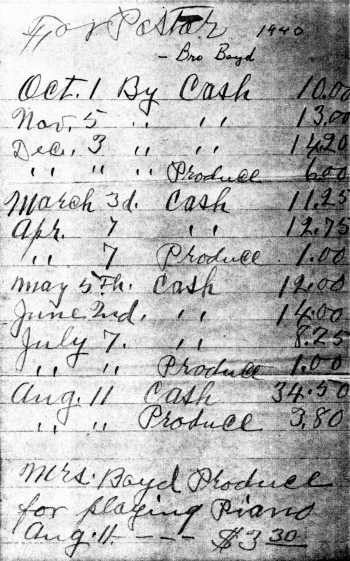 For Pastor 1940
- Bro Boyd
Oct. 1 By Cash 10.00
Nov. 5 " " 13.00
Dec. 3 " " 14.20
" " " Produce 6.00
March 3d. Cash 11.25
Apr. 7 " 12.75
" 7 Produce 1.00
May 5th. Cash 12.00
June 2nd. " 14.00
July 7. " 8.25
" " Produce 1.00
Aug. 11 Cash 34.50
" " Produce 3.80
Mrs. Boyd Produce
for playing Piano
Aug. 11 - - - - $3 30